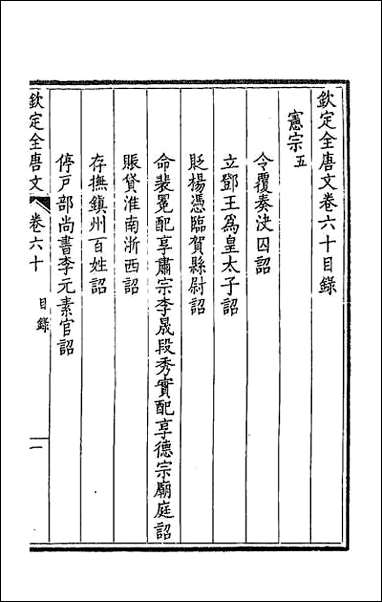 欽定全唐文卷六十目錄
憲宗五
令覆奏決囚詔
立鄧王爲皇太子詔
貶楊憑臨賀縣尉詔
命裴冕配享肅宗李晟段秀實配享德宗廟庭詔
賑貸淮南浙西詔
存撫鎮州百姓詔
停戸部尚書李元素官詔
欽定全唐文 卷六十 目錄 一